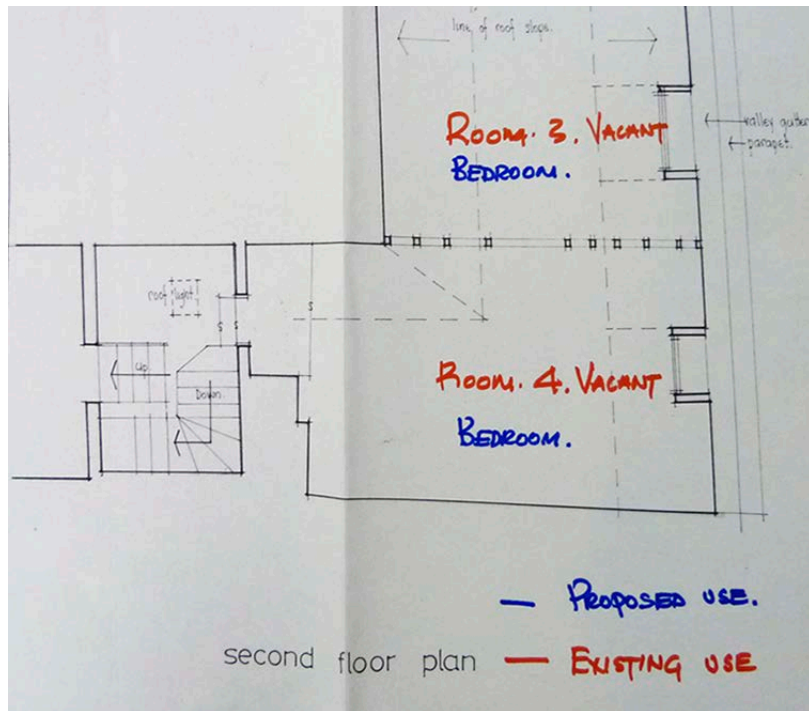 line of roof slope.
Room. 3. Vacant
Bedroom.
valley gutter
parapet.
roof light
s
s
s
Up
Down
Room. 4. Vacant
Bedroom.
Proposed use.
second floor plan
Existing use